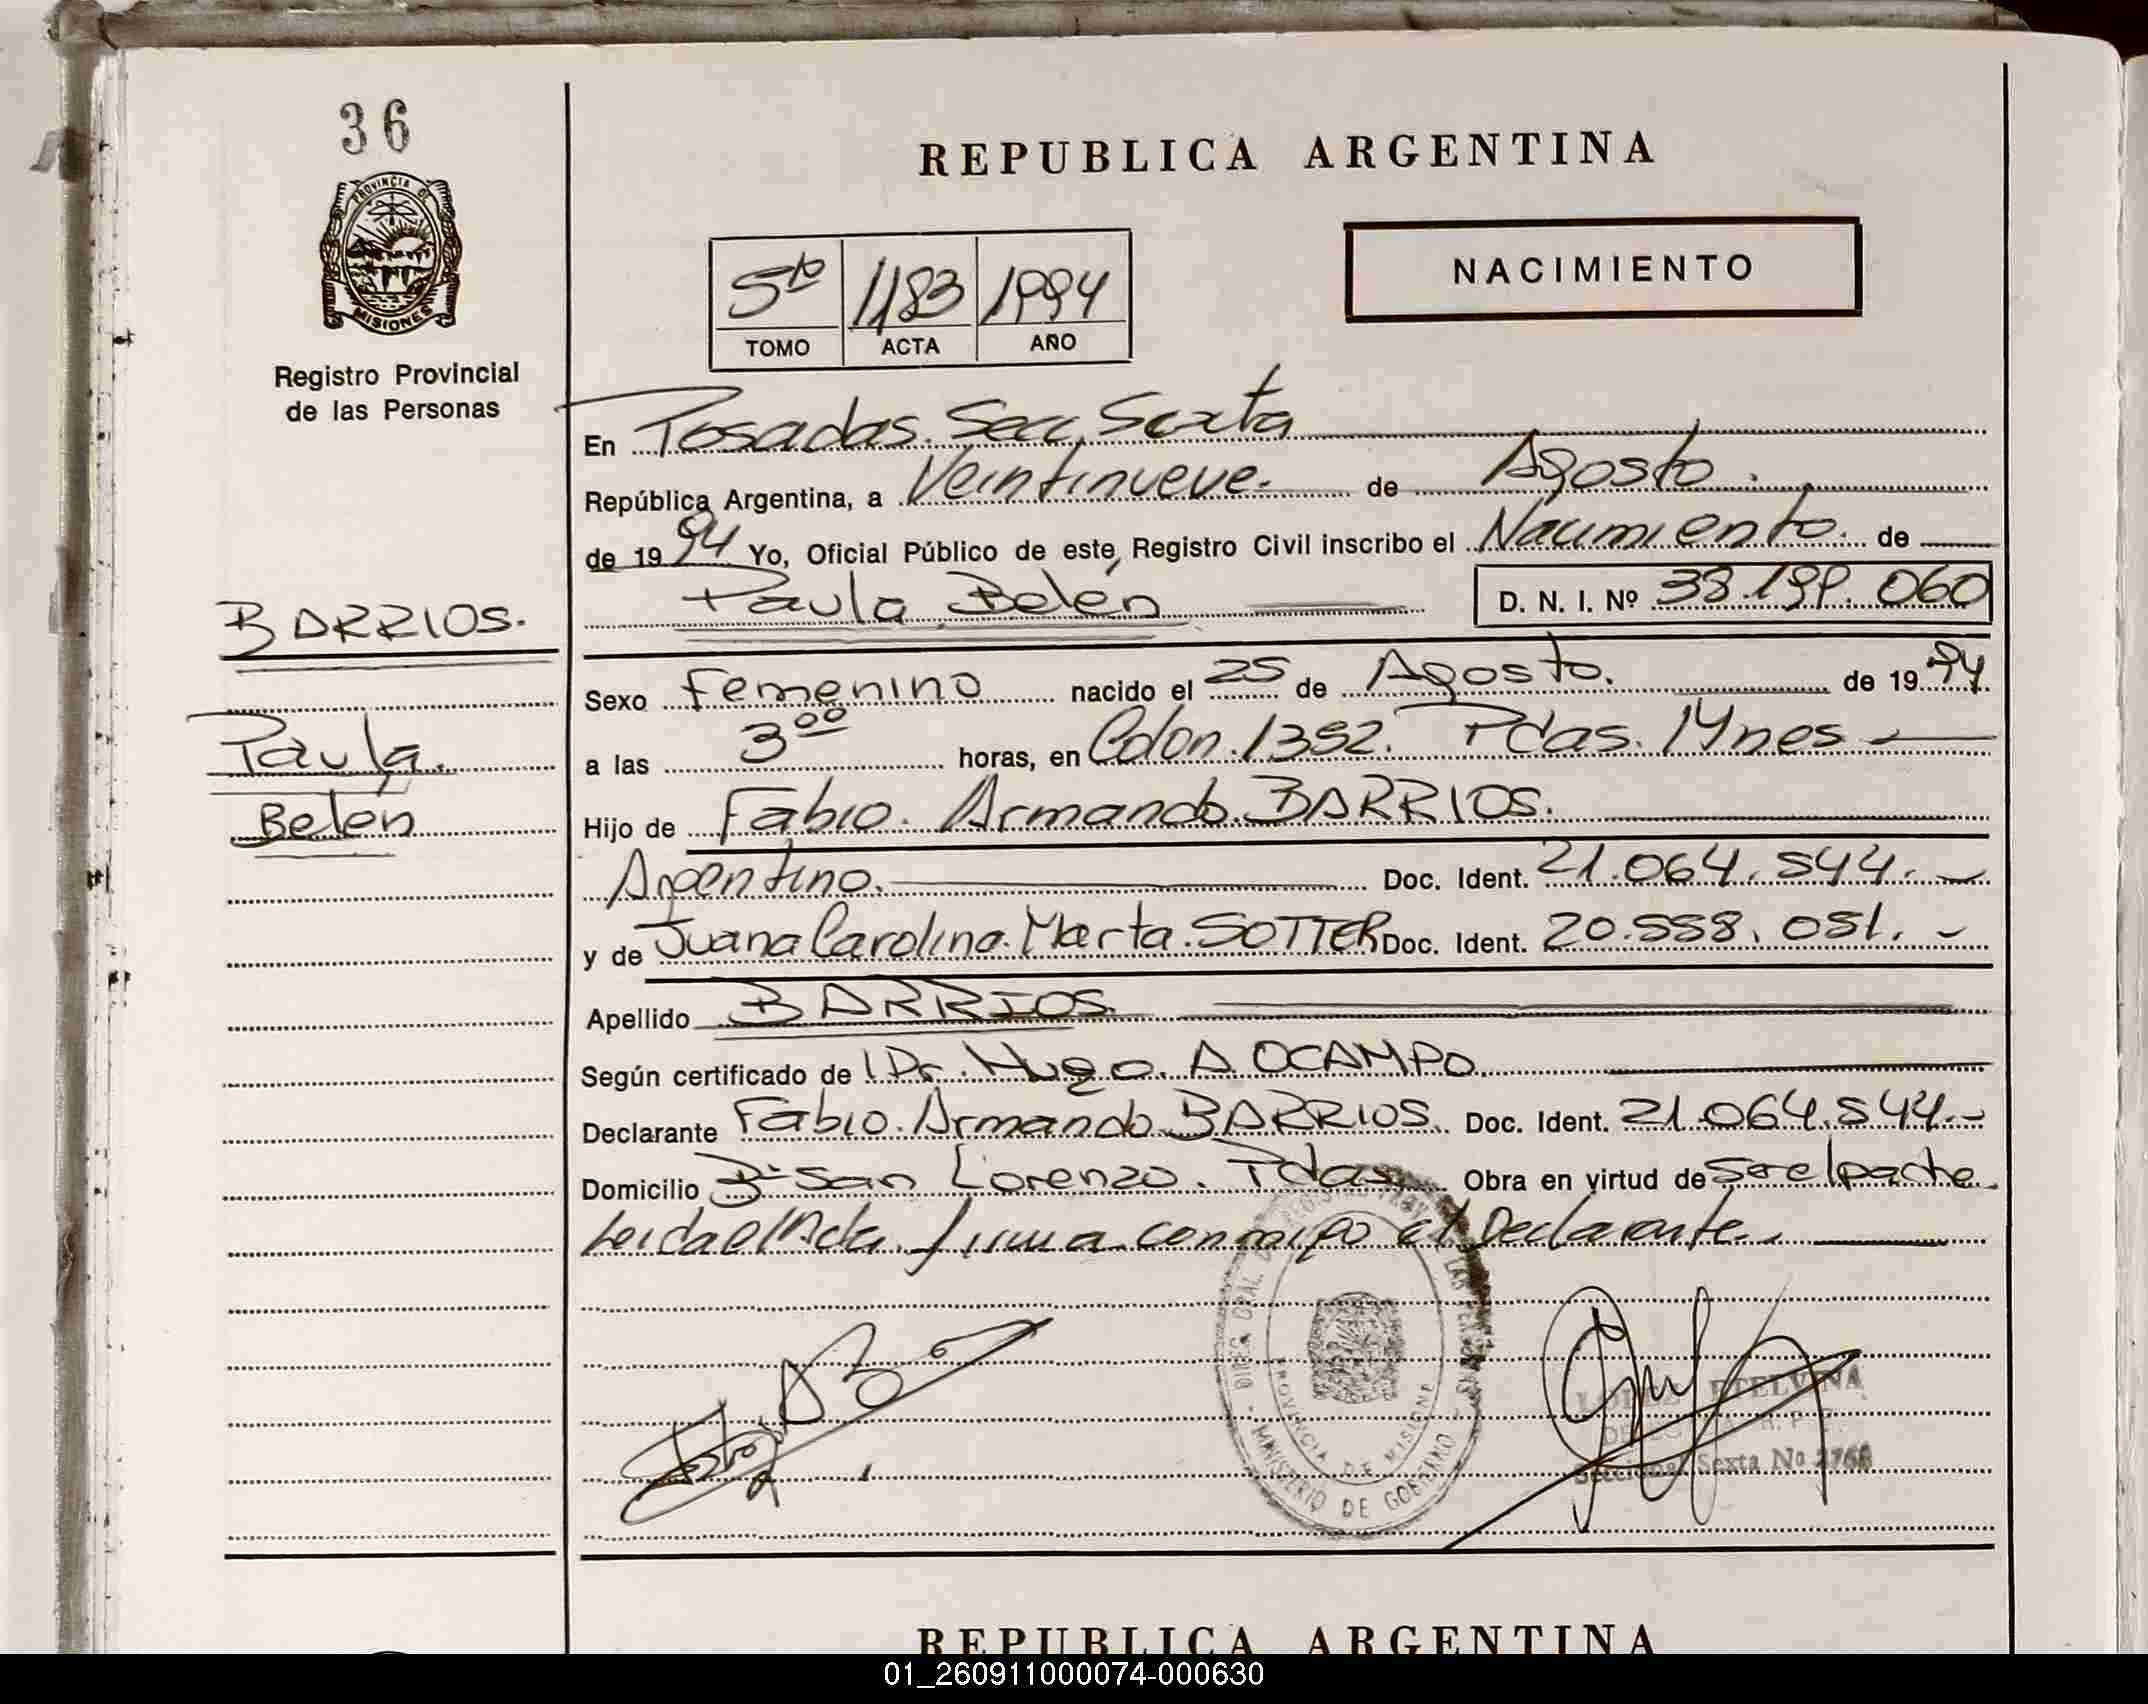 36
PROVINCIA DE
MISIONES
Registro Provincial
de las Personas
REPUBLICA ARGENTINA
NACIMIENTO
5to 1183 1994
TOMO ACTA AÑO
En Posadas. Secc. Sexta
República Argentina, a Veintinueve. de Agosto.
de 1994 Yo, Oficial Público de este Registro Civil inscribo el Nacimiento. de
Paula Belén D. N. I. Nº 38.199.060
BARRIOS.
Paula
Belén
Sexo Femenino nacido el 25 de Agosto. de 1994
a las 3oo horas, en Colon. 1352. Pdas. Mnes
Hijo de Fabio. Armando. BARRIOS.
Argentino. Doc. Ident. 21.064.544.
y de Juana Carolina. Marta. SOTTER Doc. Ident. 20.558.051.
Apellido BARRIOS.
Según certificado de l Dr. Hugo. A. OCAMPO
Declarante Fabio. Armando BARRIOS. Doc. Ident. 21.064.544.
Domicilio Bº San Lorenzo. Pdas. Obra en virtud de Ser el padre
Leida el Acta. firma conmigo el Declarante.
MINISTERIO DE GOBIERNO
PROVINCIA DE MISIONES
LOPEZ ETELVINA
Seccional Sexta No 2768
REPUBLICA ARGENTINA
01_260911000074-000630